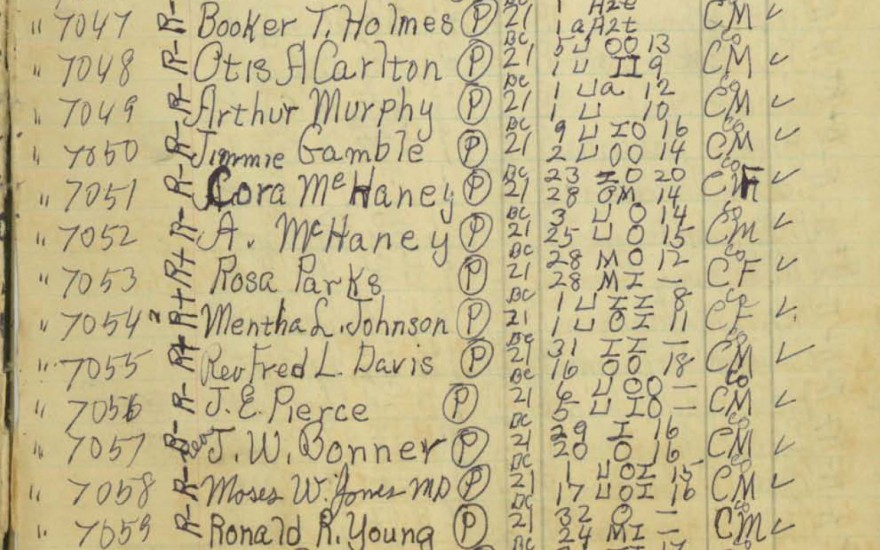 " 7047 R- Booker T. Holmes P 21 1 aA2t CM ✓
" 7048 R- Otis A Carlton P DC 21 5 U OO 13 1 U II 9 CM ✓
" 7049 R- Arthur Murphy P DC 21 1 Ua 12 1 U 10 CM ✓
" 7050 R- Jimmie Gamble P DC 21 9 U IO 16 2 U OO 14 CM ✓
" 7051 R- Cora McHaney P DC 21 23 IO 20 28 OM 14 C F
" 7052 R- A. McHaney P DC 21 3 U O 14 25 U O 15 CM ✓
" 7053 R+ Rosa Parks P DC 21 28 MO 12 28 MI — CF ✓
" 7054 R+ Mentha L. Johnson P DC 21 1 U II 8 1 U OI 11 CF ✓
" 7055 R+ Rev Fred L. Davis P DC 21 31 II — 16 OO 18 CM ✓
" 7056 R- J. E. Pierce P DC 21 6 U OO — 5 U IO — CM ✓
" 7057 R- Rev J. W. Bonner P DC 21 29 I 16 20 O 16 CM ✓
" 7058 R- Moses W. Jones MD P DC 21 1 U OI 15 17 U OI 16 CM ✓
" 7059 R- Ronald R. Young P DC 21 32 O — 24 MI — CM ✓